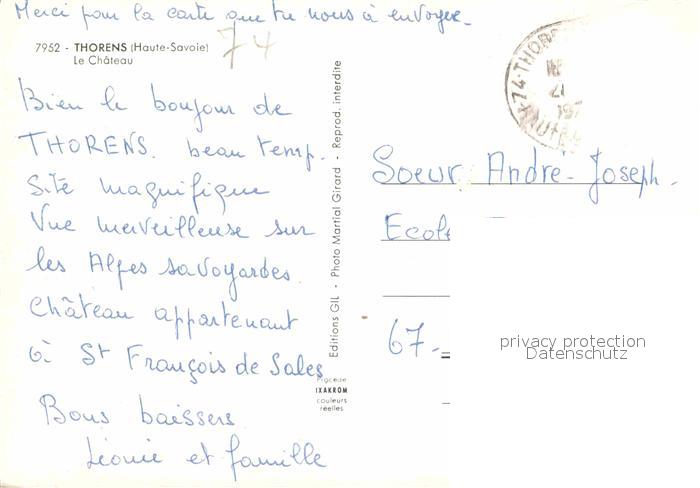 Merci pour la carte que tu nous à envoyée.
74
7952 - THORENS (Haute-Savoie)
Le Château
Bien le bonjour de
THORENS. beau temp.
Sité magnifique
Vue merveilleuse sur
les Alpes savoyardes
Château appartenant
à St François de Sales
Bons baissers
Léonie et famille
Editions GIL - Photo Martial Girard - Reprod. interdite
IXAKROM
couleurs
réelles
74-THOR
Soeur André-Joseph.
Ecole
67-
privacy protection
Datenschutz